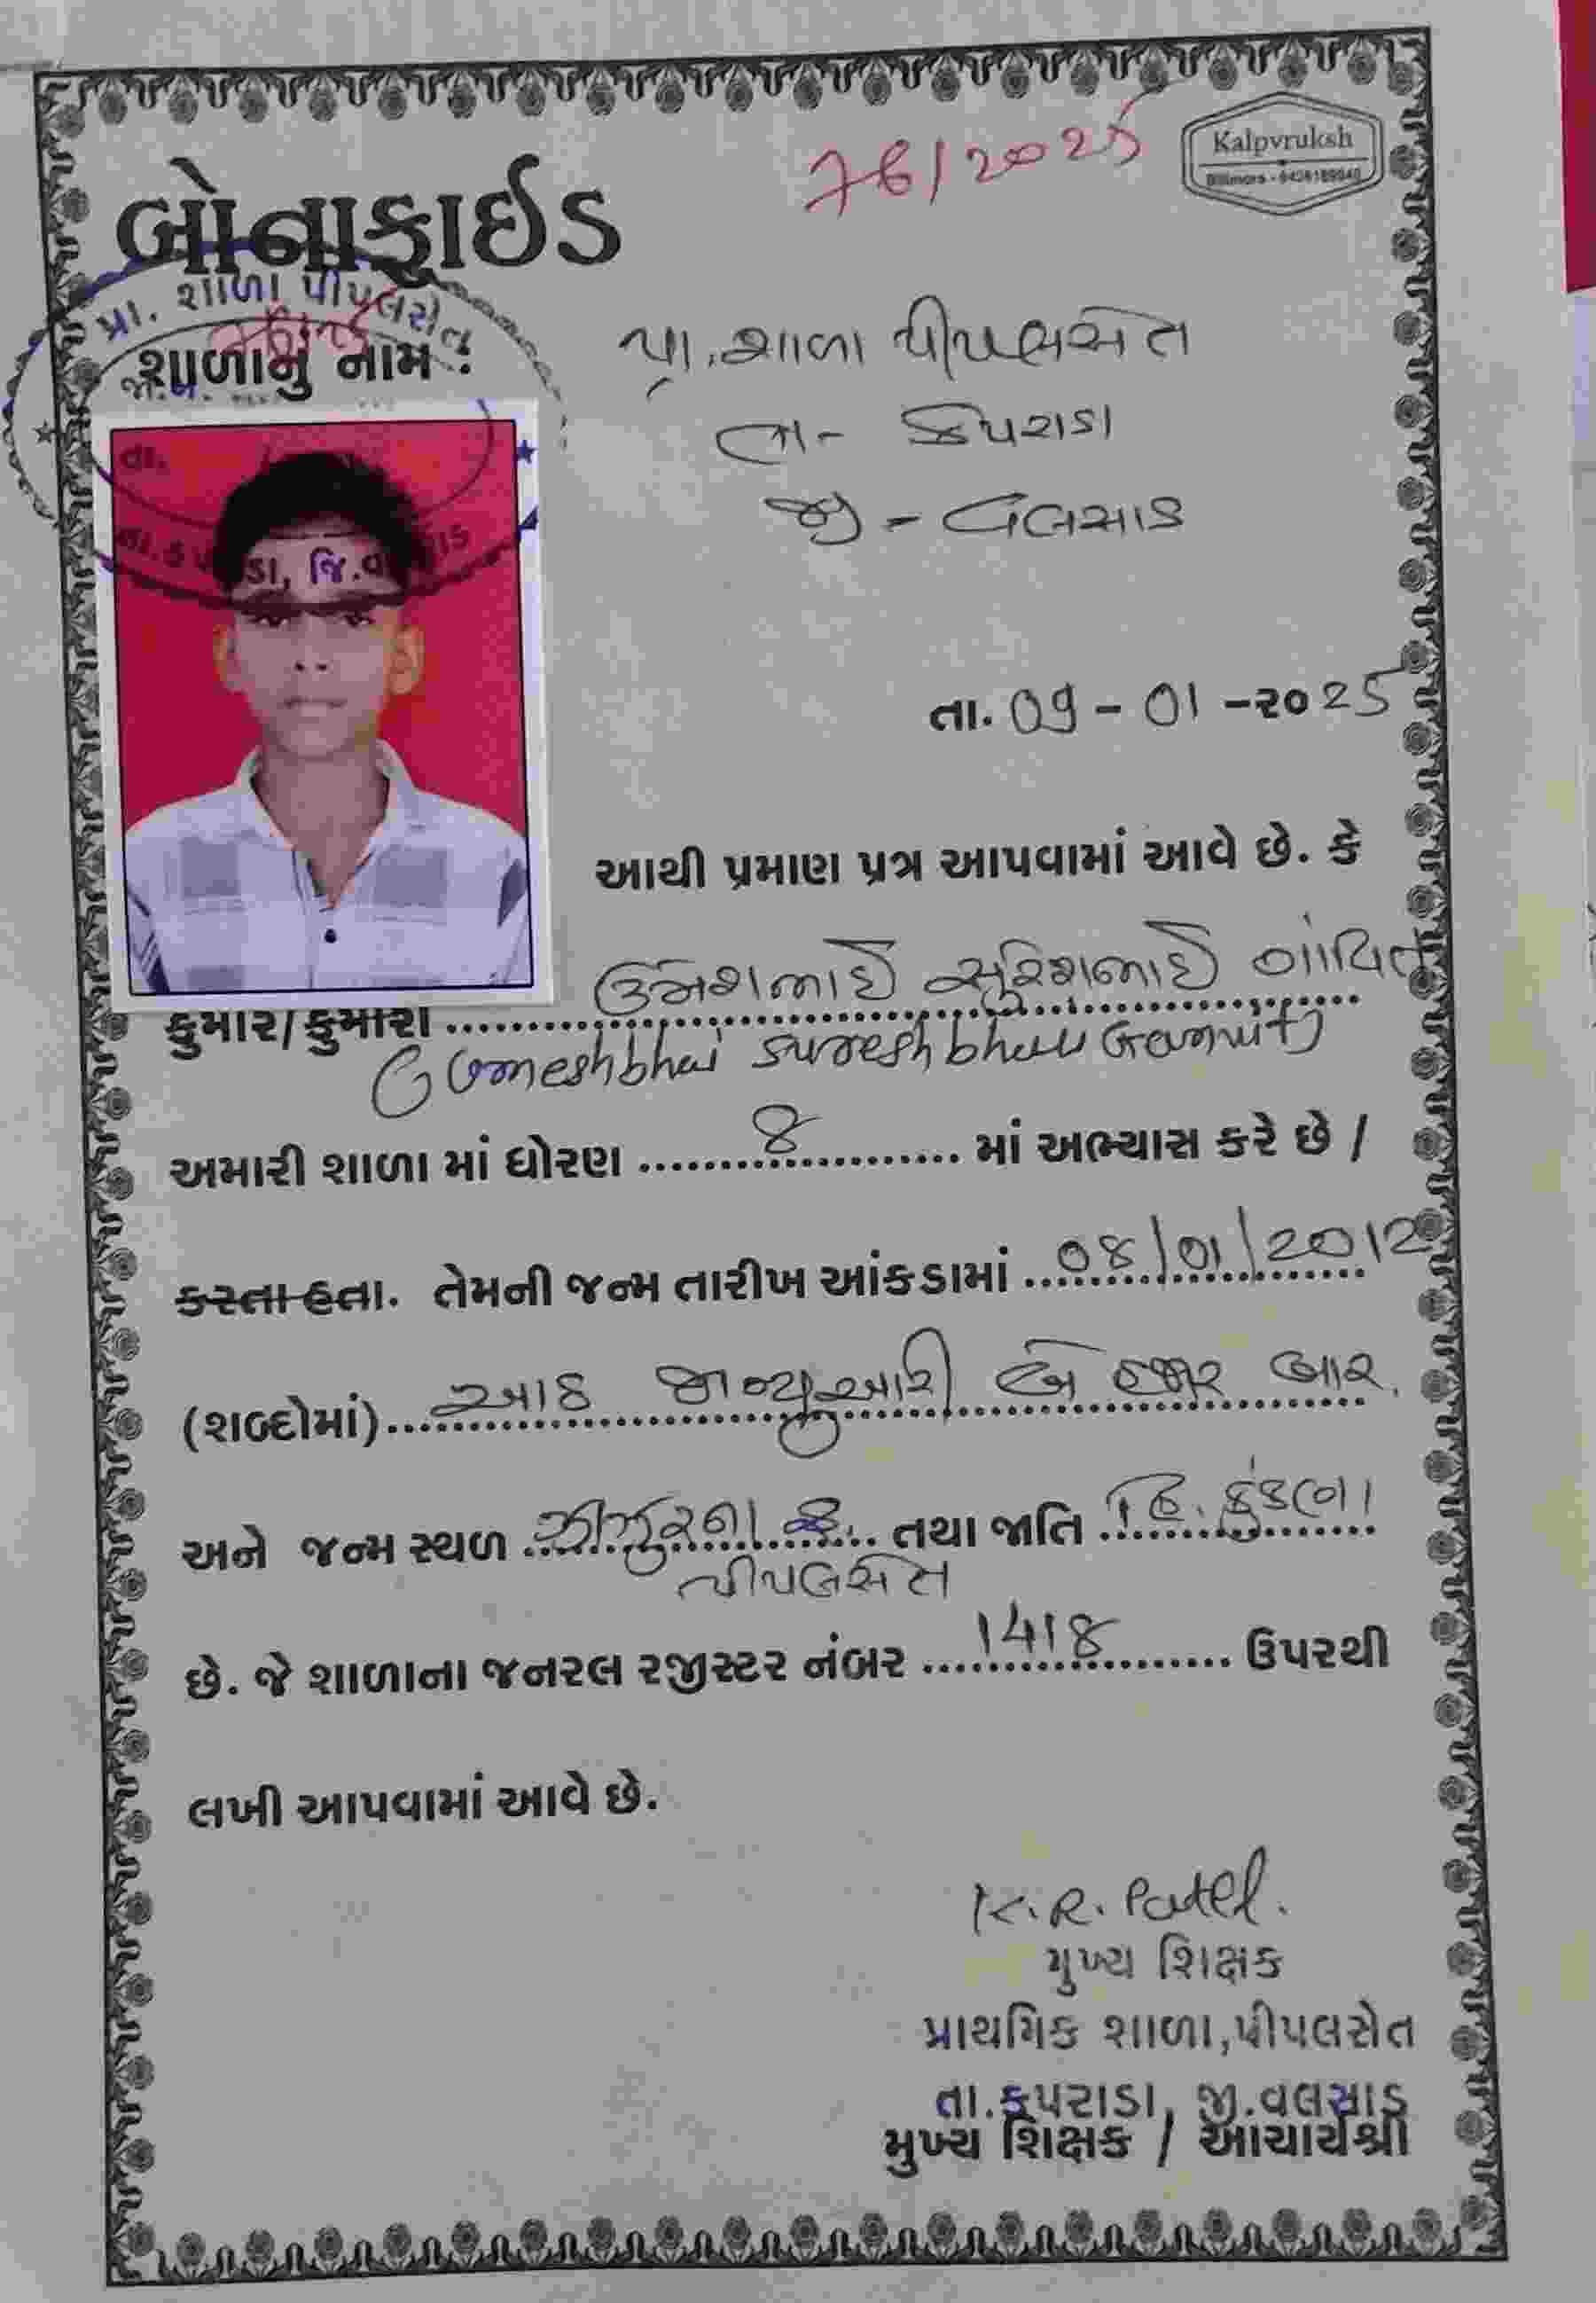 76/2025
Kalpvruksh
Bilimora - 9426189940
બોનાફાઈડ
પ્રા. શાળા પીપલસેત
શાળાનું નામ :
પ્રા. શાળા પીપલસેત
તા- કપરાડા
જી - વલસાડ
તા.કપરાડા, જિ.વલસાડ
તા. 09 - 01 -૨૦25
આથી પ્રમાણ પત્ર આપવામાં આવે છે. કે
કુમાર/કુમારી ઉમેશભાઈ સુરેશભાઈ ગાંવિત
(Umeshbhai sureshbhai Ganvit)
અમારી શાળા માં ધોરણ ૪ માં અભ્યાસ કરે છે /
કરતા હતા. તેમની જન્મ તારીખ આંકડામાં 08/01/2012
(શબ્દોમાં) આઠ જાન્યુઆરી બે હજાર બાર.
અને જન્મ સ્થળ તથા જાતિ હિ. કુંકણા
પીપલસેત
છે. જે શાળાના જનરલ રજીસ્ટર નંબર 1418 ઉપરથી
લખી આપવામાં આવે છે.
K.R. Patel.
મુખ્ય શિક્ષક
પ્રાથમિક શાળા,પીપલસેત
તા.કપરાડા, જી.વલસાડ
મુખ્ય શિક્ષક / આચાર્યશ્રી